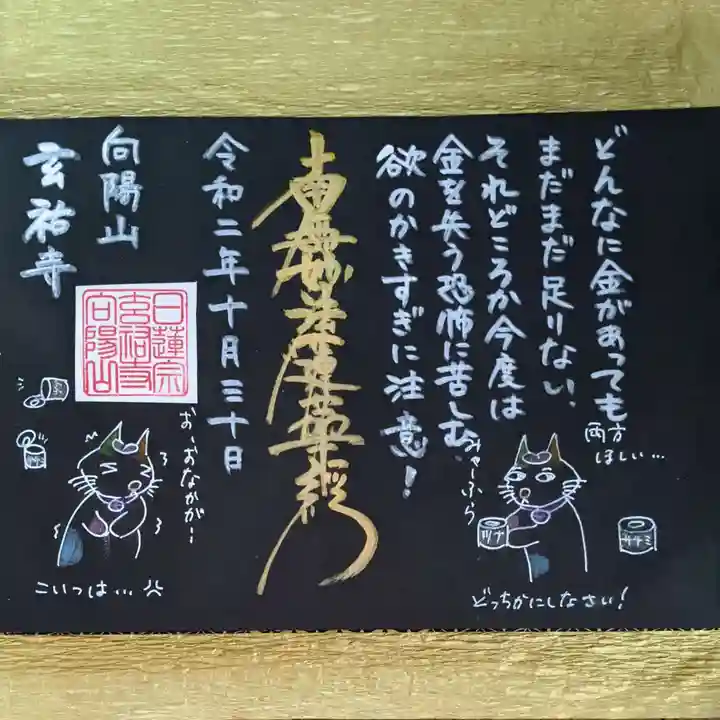 どんなに金があっても
まだまだ足りない、
それどころか今度は
金を失う恐怖に苦しむ、
欲のかきすぎに注意!
南無妙法蓮華経
令和二年十月三十日
向陽山
玄祐寺
日蓮宗
玄祐寺
向陽山
両方
ほしい…
みゃーふら
ツナ
ササミ
どっちかにしなさい!
お、おなかが…
こいつは…